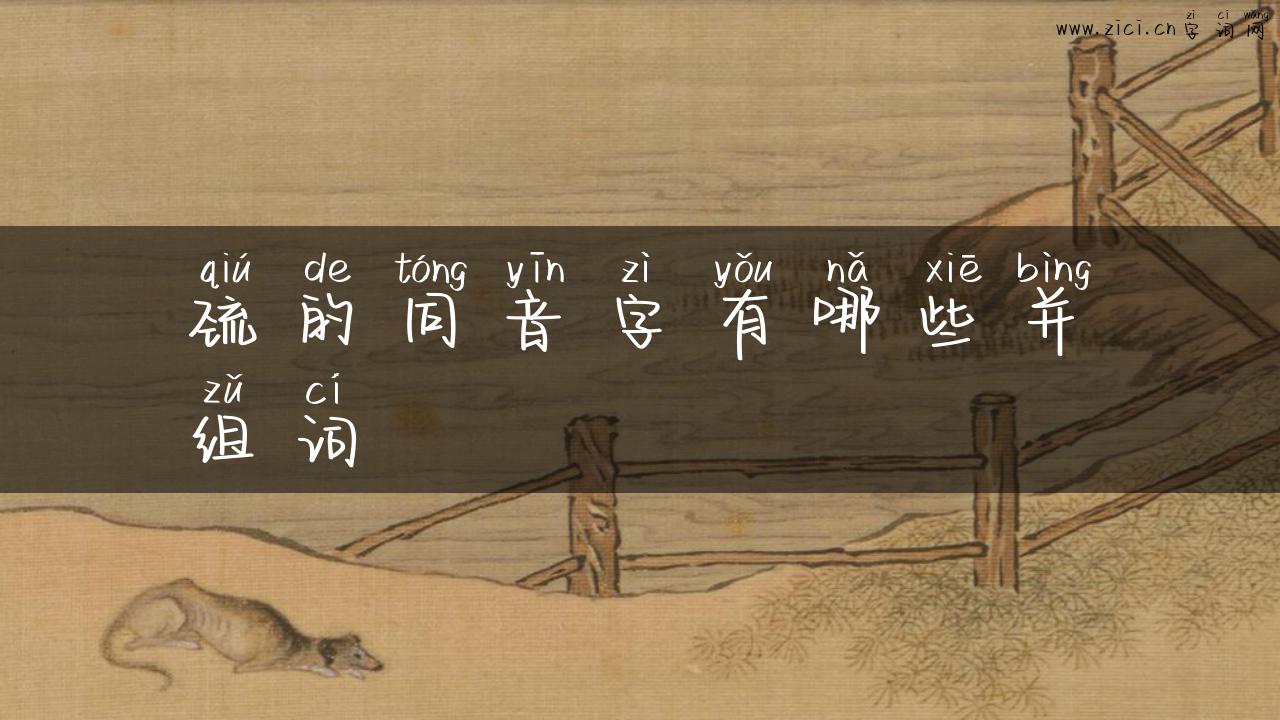 zi ci wang
www.zici.cn 字词网
qiú de tóng yīn zì yǒu nǎ xiē bìng
巯的同音字有哪些并
zǔ cí
组词